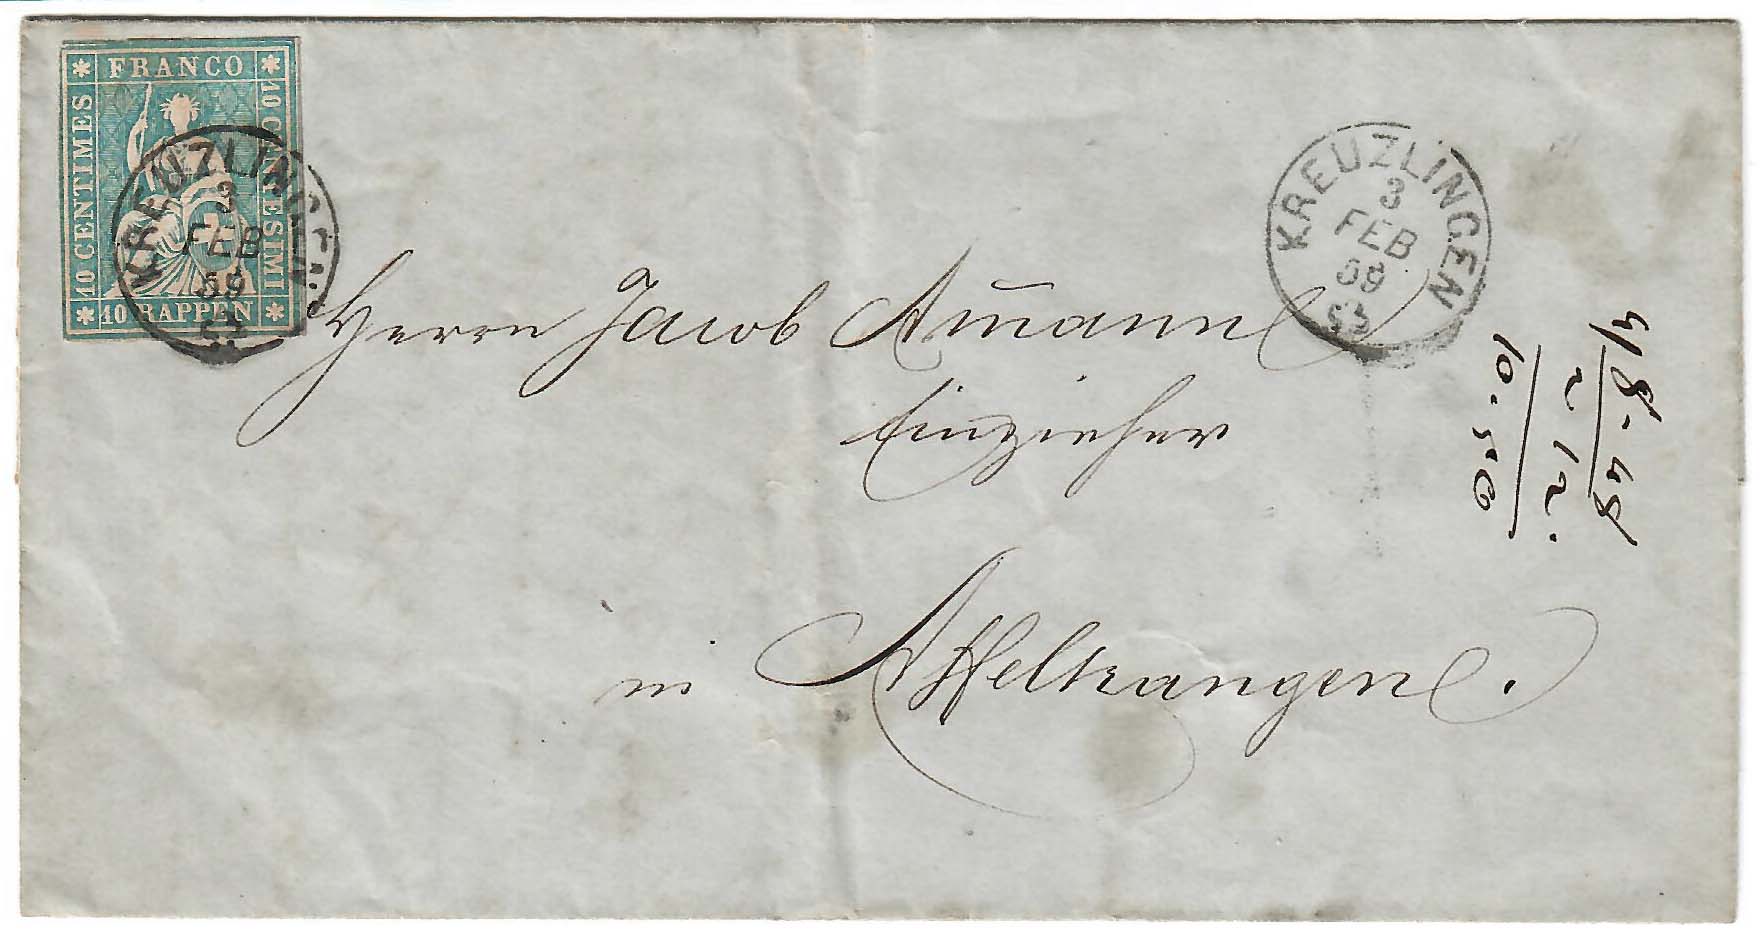 FRANCO
10 CENTIMES
10 CENTESIMI
10 RAPPEN
KREUZLINGEN
3
FEB
59
KREUZLINGEN
3
FEB
59
Herrn Jacob Am̄ann
Einzieher
in Affeltrangen.
10.50